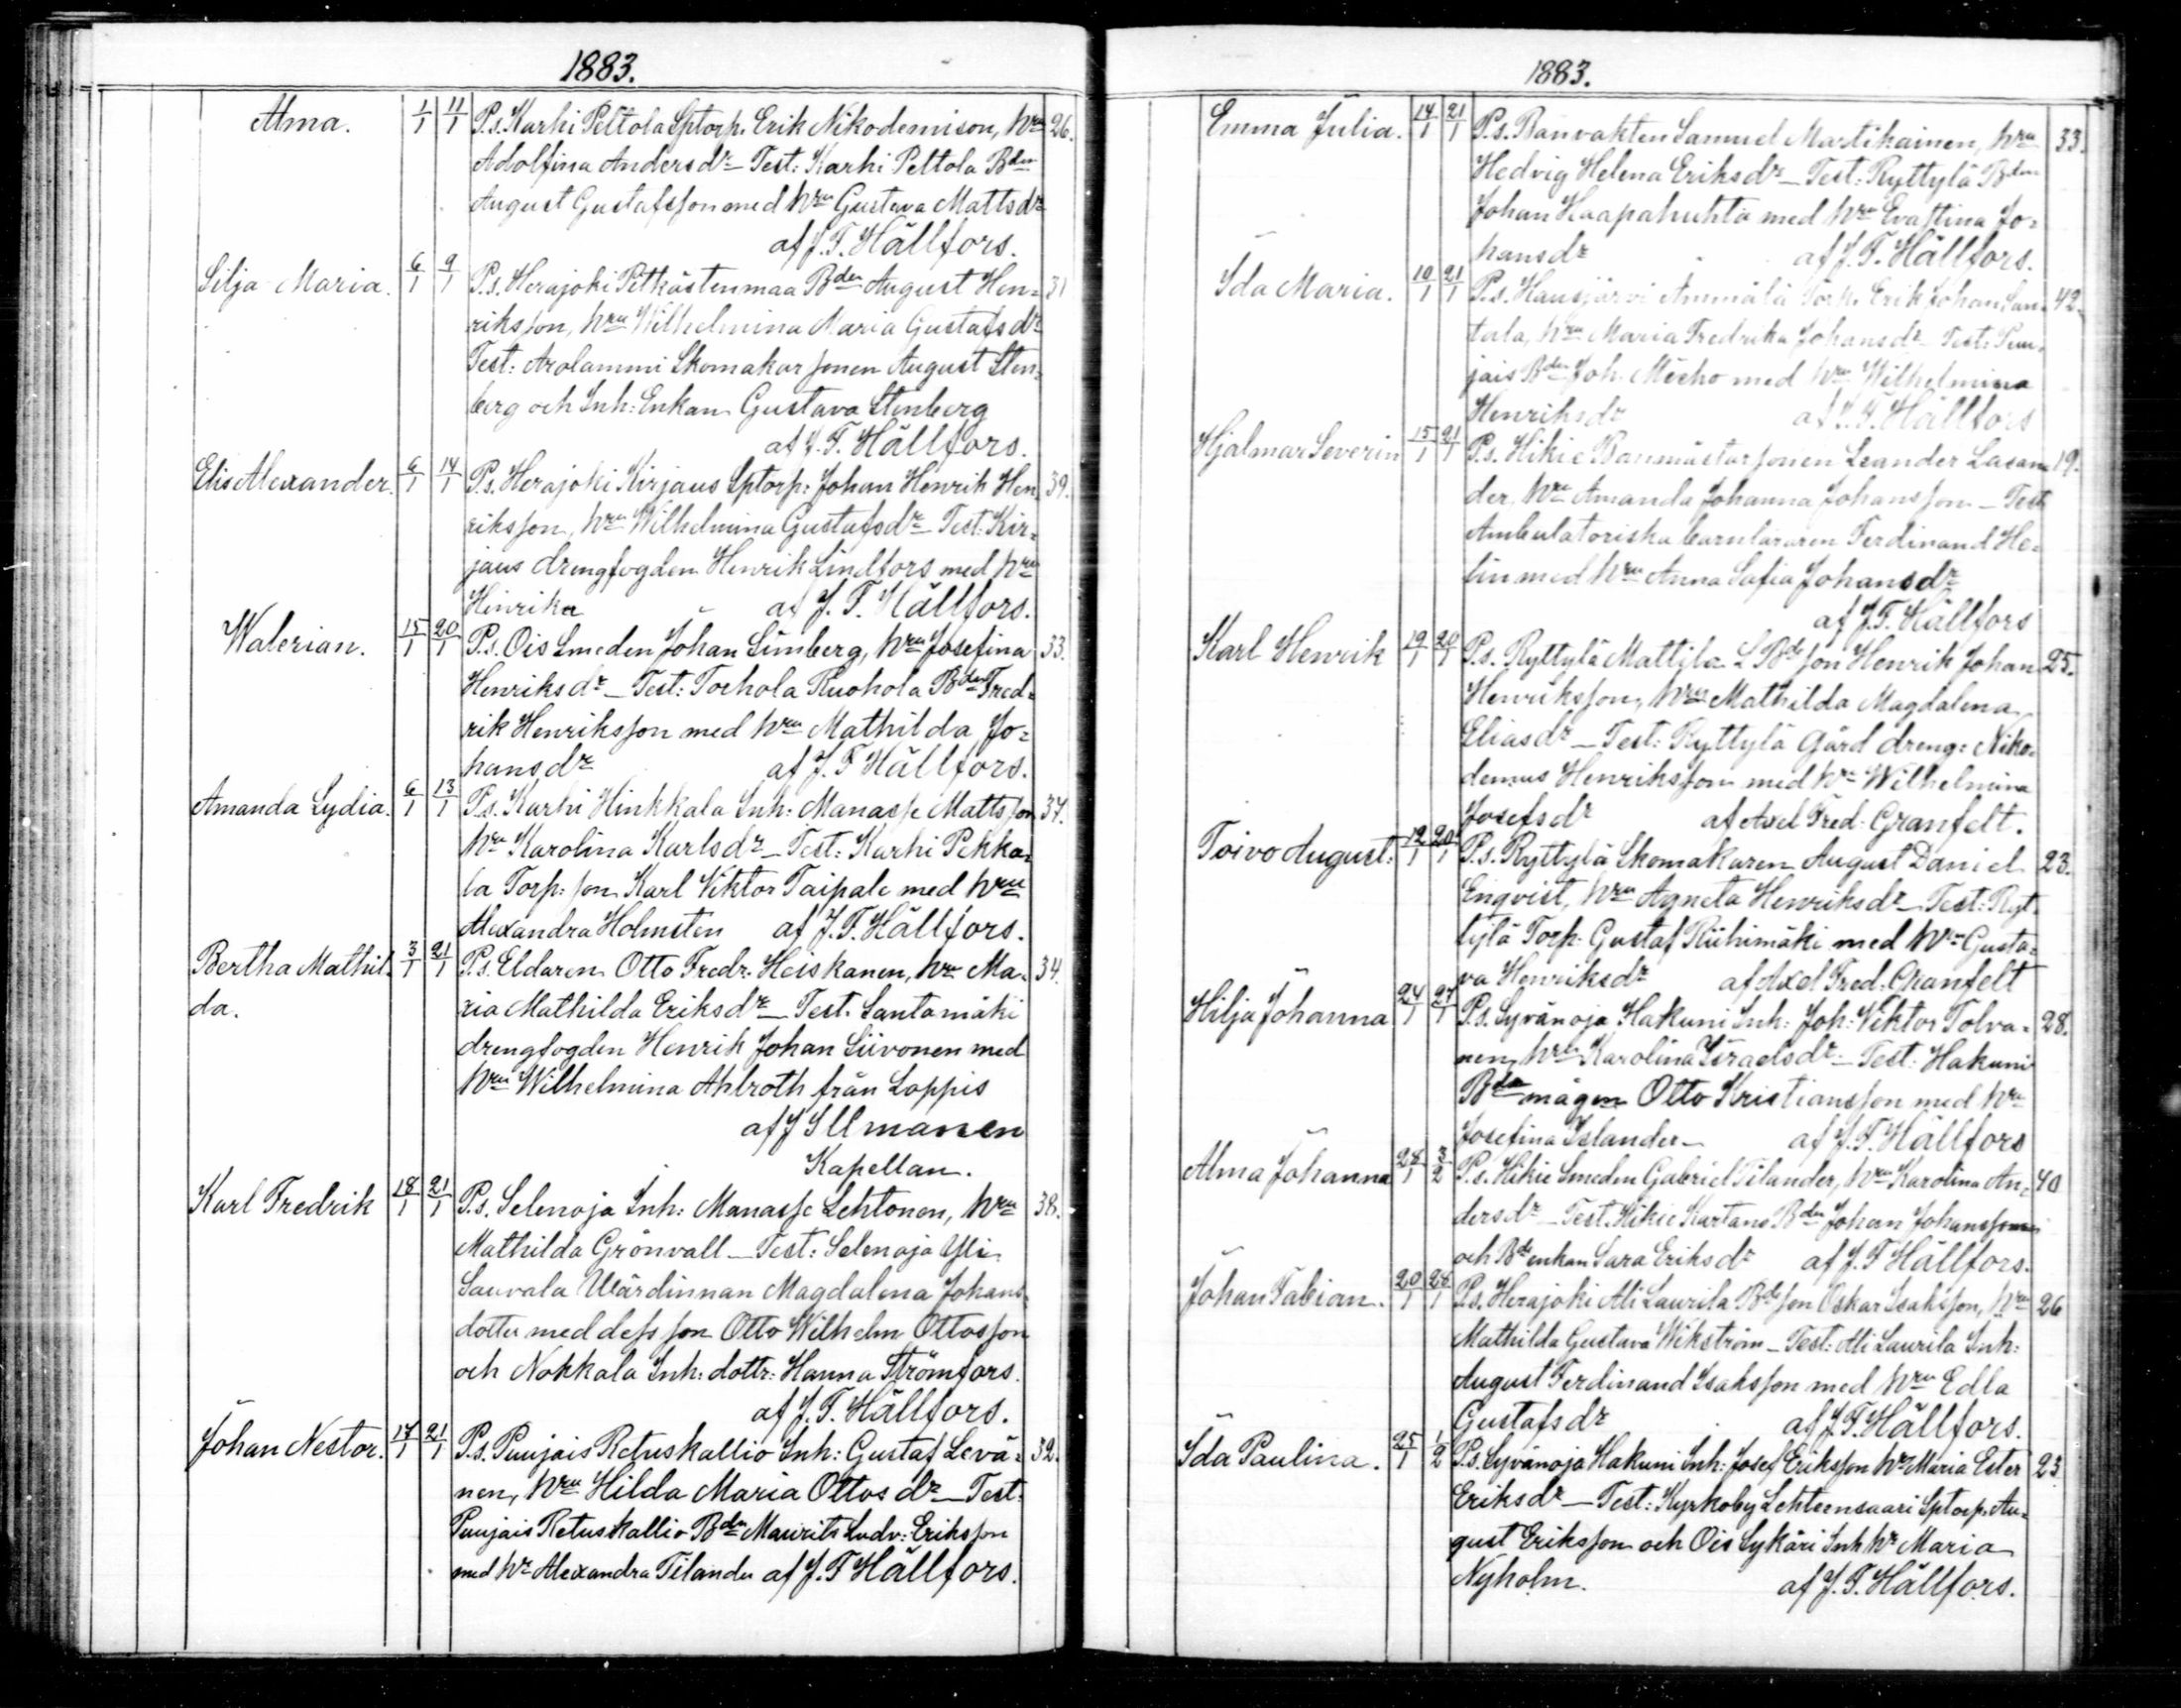 1883.
Alma. 1/1 11/1 P.s. Karhi Peltola Sptorp. Erik Nikodemison, hru 26.
Adolfina Andersdr – Test: Karhi Peltola Bden
August Gustafsson med hru Gustava Mattsdr
af J. F. Hällfors.
Silja Maria. 6/1 9/1 P.s. Herajoki Petkästenmaa Bden August Hen= 31
riksson, hru Wilhelmina Maria Gustafsdr
Test: Arolammi Skomakarsonen August Sten=
berg och Inh: Enkan Gustava Stenberg
af J. F. Hällfors.
Elis Alexander. 6/1 14/1 P.s. Herajoki Kirjaus Sptorp: Johan Henrik Hen 39.
riksson, hru Wilhelmina Gustafsdr – Test: Kir=
jaus drengfogden Henrik Lindfors med hru
Hinrika af J. F. Hällfors.
Walerian. 15/1 20/1 P.s. Ois Smeden Johan Limberg, hru Josefina 33.
Henriksdr – Test: Torhola Ruohola Bden Fred=
rik Henriksson med hru Mathilda Jo=
hansdr af J. F Hällfors.
Amanda Lydia. 6/1 13/1 P.s. Karhi Hinkkala Inh: Manasse Mattsson 37.
hru Karolina Karlsdr – Test: Karhi Pekka=
la Torp: son Karl Viktor Taipale med hru
Alexandra Holmsten af J. F. Hällfors.
Bertha Mathil= 3/1 21/1 P.s. Eldaren Otto Fredr. Heiskanen, hru Ma= 34.
da. ria Mathilda Eriksdr – Test. Santamäki
drengfogden Henrik Johan Siivonen med
hru Wilhelmina Ahlroth från Loppis
af J Illmanen
Kapellan.
Karl Fredrik 18/1 21/1 P.s. Selenoja Inh: Manasse Lehtonen, hru 38.
Mathilda Grönvall – Test: Selenoja Yli
Sauvala Wärdinnan Magdalena Johans=
dotter med dess son Otto Wilhelm Ottosson
och Nokkala Inh: dottr: Hanna Strömfors.
af J. F. Hällfors.
Johan Nestor. 17/1 21/1 P.s. Punjais Retuskallio Inh: Gustaf Levä= 32.
nen, hru Hilda Maria Ottosdr – Test.
Punjais Retuskallio Bden Maurits Ludv: Eriksson
med hr Alexandra Tilander af J. F Hällfors.
1883.
Emma Julia. 14/1 21/1 P.s. Banvakten Samuel Martikainen, hru 33.
Hedvig Helena Eriksdr – Test: Ryttylä Bden
Johan Haapahuhta med hru Evastina Jo=
hansdr af J. F. Hällfors.
Ida Maria. 10/1 21/1 P.s. Hausjärvi Ammälä Torp. Erik Johan San= 42.
tala, hru Maria Fredrika Johansdr – Test: Pun=
jais Bden Joh. Mecho med hru Wilhelmina
Henriksdr af J. F. Hällfors
Hjalmar Severin 15/1 21/1 P.s. Hikie Banmästarsonen Leander Lasan= 19.
der, hru Amanda Johanna Johansson – Test
Ambulatoriska barnläraren Ferdinand He=
lin med hru Anna Sofia Johansdr
af J. F. Hällfors
Karl Henrik 19/1 20/1 P.s. Ryttylä Mattila L Bde son Henrik Johan 25.
Henriksson, hru Mathilda Magdalena
Eliasdr – Test: Ryttylä Gård dreng: Niko=
demus Henriksson med hru Wilhelmina
Josefsdr af Axel Fred. Granfelt.
Toivo August. 12/1 20/1 P.s. Ryttylä Skomakaren August Daniel 23.
Enqvist, hru Agneta Henriksdr – Test: Ryt=
tylä Torp: Gustaf Riihimäki med hru Gusta=
va Henriksdr af Axel Fred. Granfelt
Hilja Johanna 24/1 27/1 P.s. Syvänoja Hakuni Inh: Joh: Viktor Tolva= 28.
nen, hru Karolina Israelsdr – Test: Hakuni
Bde mågen Otto Kristiansson med hru
Josefina Islander – af J. F. Hällfors
Alma Johanna 28/1 3/2 P.s. Hikie Smeden Gabriel Tilander, hru Karolina An= 40
dersdr – Test. Hikie Kartano Bden Johan Johansson
och Bde enkan Sara Eriksdr af J. F Hällfors.
Johan Fabian. 20/1 28/1 P.s. Herajoki Ali Laurila Bde son Oskar Isaksson, hru 26
Mathilda Gustava Wikström – Test: Ali Laurila Inh:
August Ferdinand Isaksson med hru Edla
Gustafsdr af J. F. Hällfors.
Ida Paulina. 25/1 1/2 P.s. Syvänoja Hakuni Inh: Josef Eriksson hru Maria Ester 23
Eriksdr – Test: Kyrkoby Lehteensaari Sptorp. Au=
gust Eriksson och Ois Sykäri Inh hr Maria
Nyholm. af J. F. Hällfors.